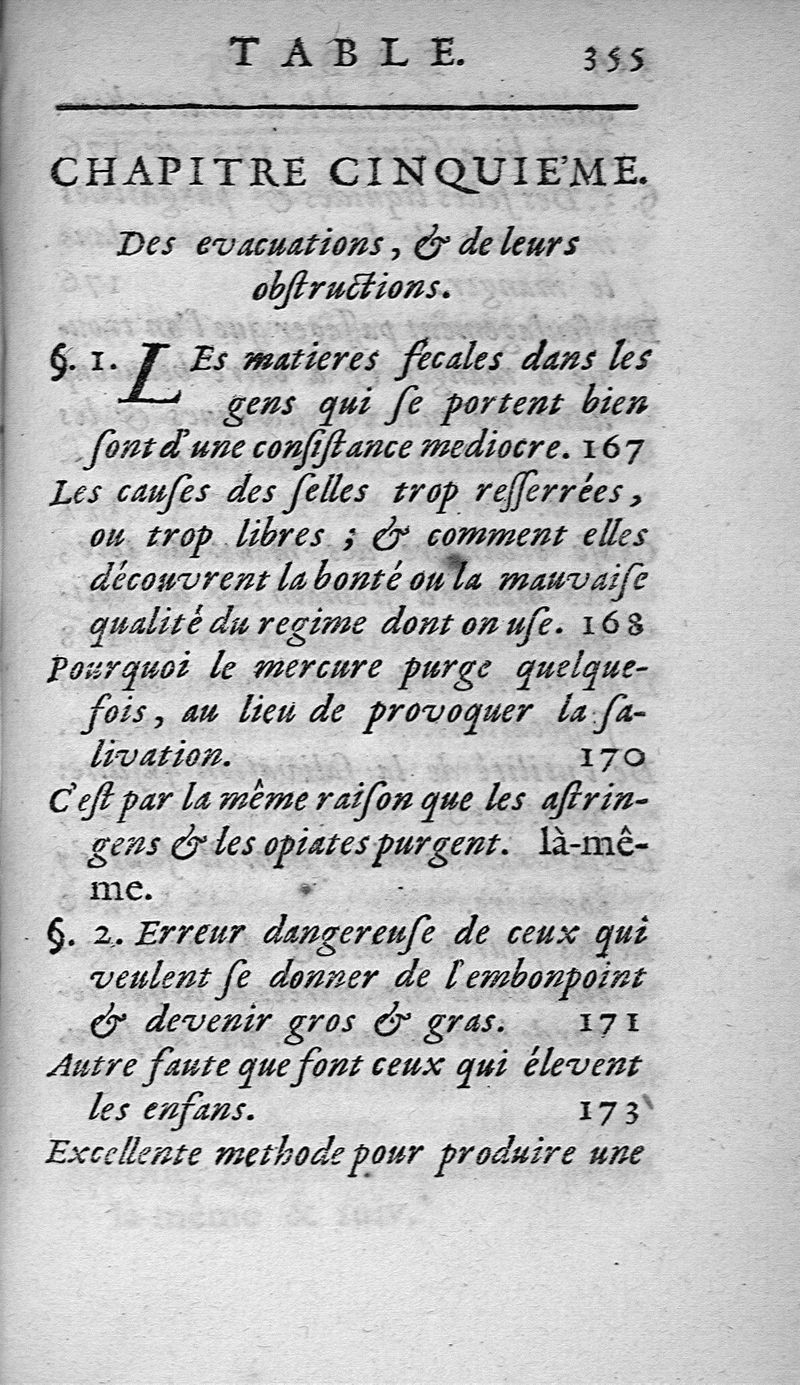 TABLE. 355
CHAPITRE CINQUIE'ME.
Des evacuations, & de leurs
obſtructions.
§. 1. LEs matieres fecales dans les
gens qui ſe portent bien
ſont d'une conſiſtance mediocre. 167
Les cauſes des ſelles trop reſſerrées,
ou trop libres ; & comment elles
découvrent la bonté ou la mauvaiſe
qualité du regime dont on uſe. 168
Pourquoi le mercure purge quelque-
fois, au lieu de provoquer la ſa-
livation. 170
C'eſt par la même raiſon que les aſtrin-
gens & les opiates purgent. là-mê-
me.
§. 2. Erreur dangereuſe de ceux qui
veulent ſe donner de l'embonpoint
& devenir gros & gras. 171
Autre faute que font ceux qui élevent
les enfans. 173
Excellente methode pour produire une